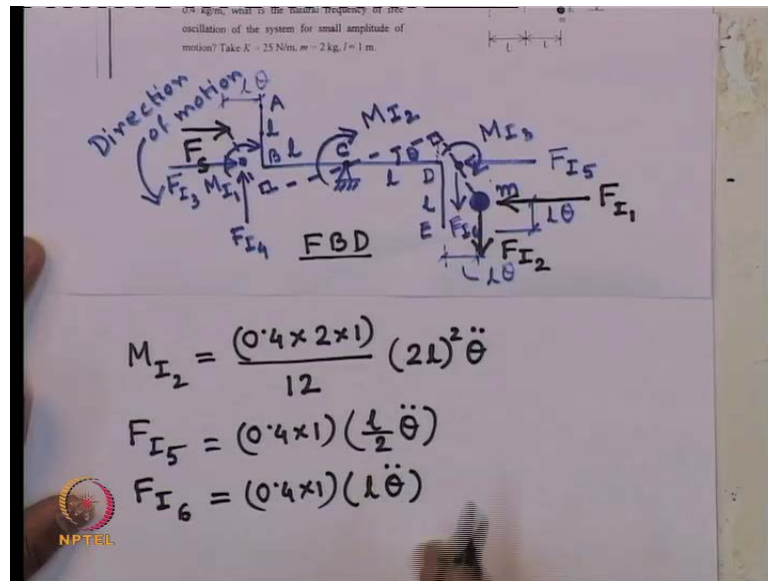 0.4 kg/m, what is the natural frequency of free
oscillation of the system for small amplitude of
motion? Take K = 25 N/m, m = 2 kg, l = 1 m.
m
L L
Direction of motion
lθ
A
l
F_S
B
l
M_I2
C
l
θ
D
M_I3
F_I5
F_I3
M_I1
F_I4
FBD
l
E
m
F_I1
lθ
F_I2
lθ
M_I2 = (0.4×2×1)/12 (2l)² θ̈
F_I5 = (0.4×1)(l/2 θ̈)
F_I6 = (0.4×1)(l θ̈)
NPTEL